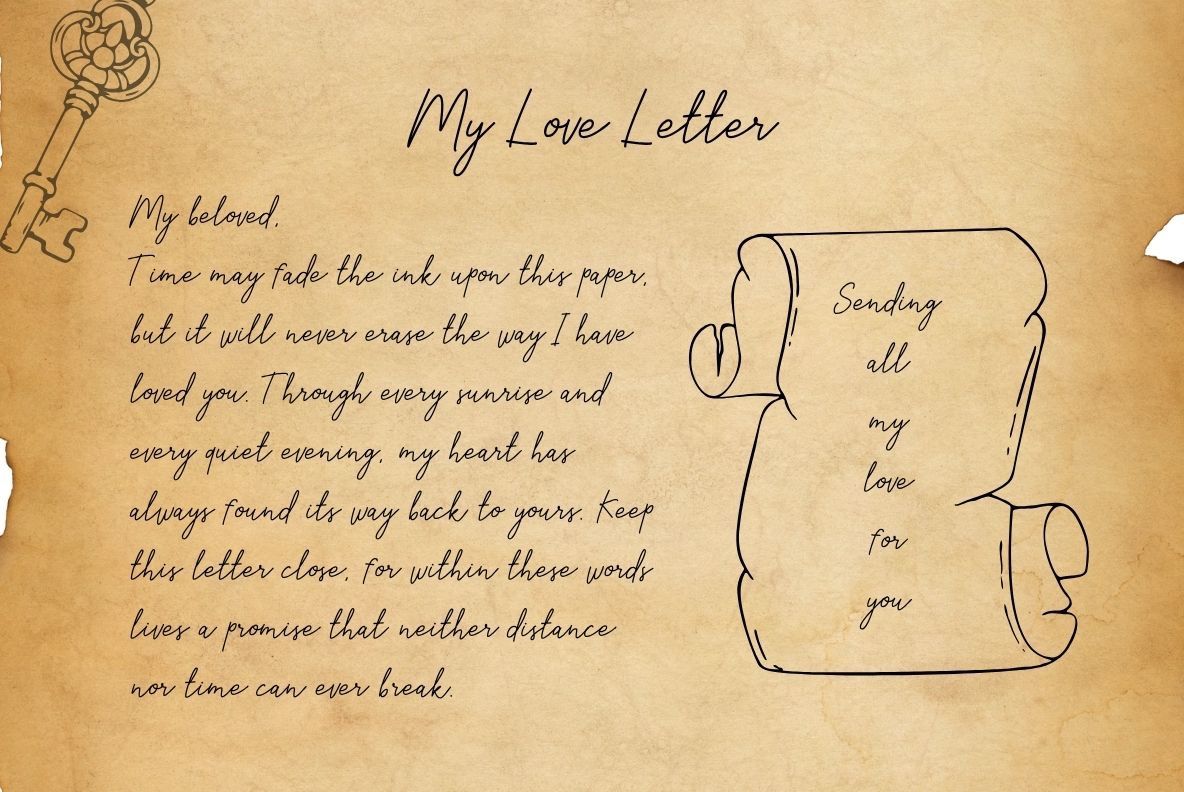 My Love Letter
My beloved,
Time may fade the ink upon this paper,
but it will never erase the way I have
loved you. Through every sunrise and
every quiet evening, my heart has
always found its way back to yours. Keep
this letter close, for within these words
lives a promise that neither distance
nor time can ever break.
Sending
all
my
love
for
you